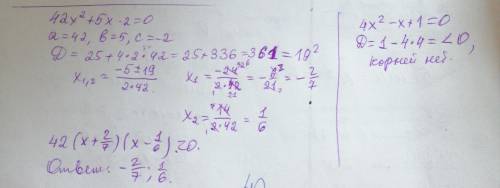 42x²+5x-2=0
a=42, b=5, c=-2
D=25+4·2·42=25+336=361=19²
x₁,₂ = (-5±19)/(2·42)  x₁ = -24/(2·42) = -6/21 = -2/7
x₂ = 14/(2·42) = 1/6
42(x+2/7)(x-1/6)=0.
Ответ: -2/7; 1/6.
4x²-x+1=0
D=1-4·4=<0,
корней нет.